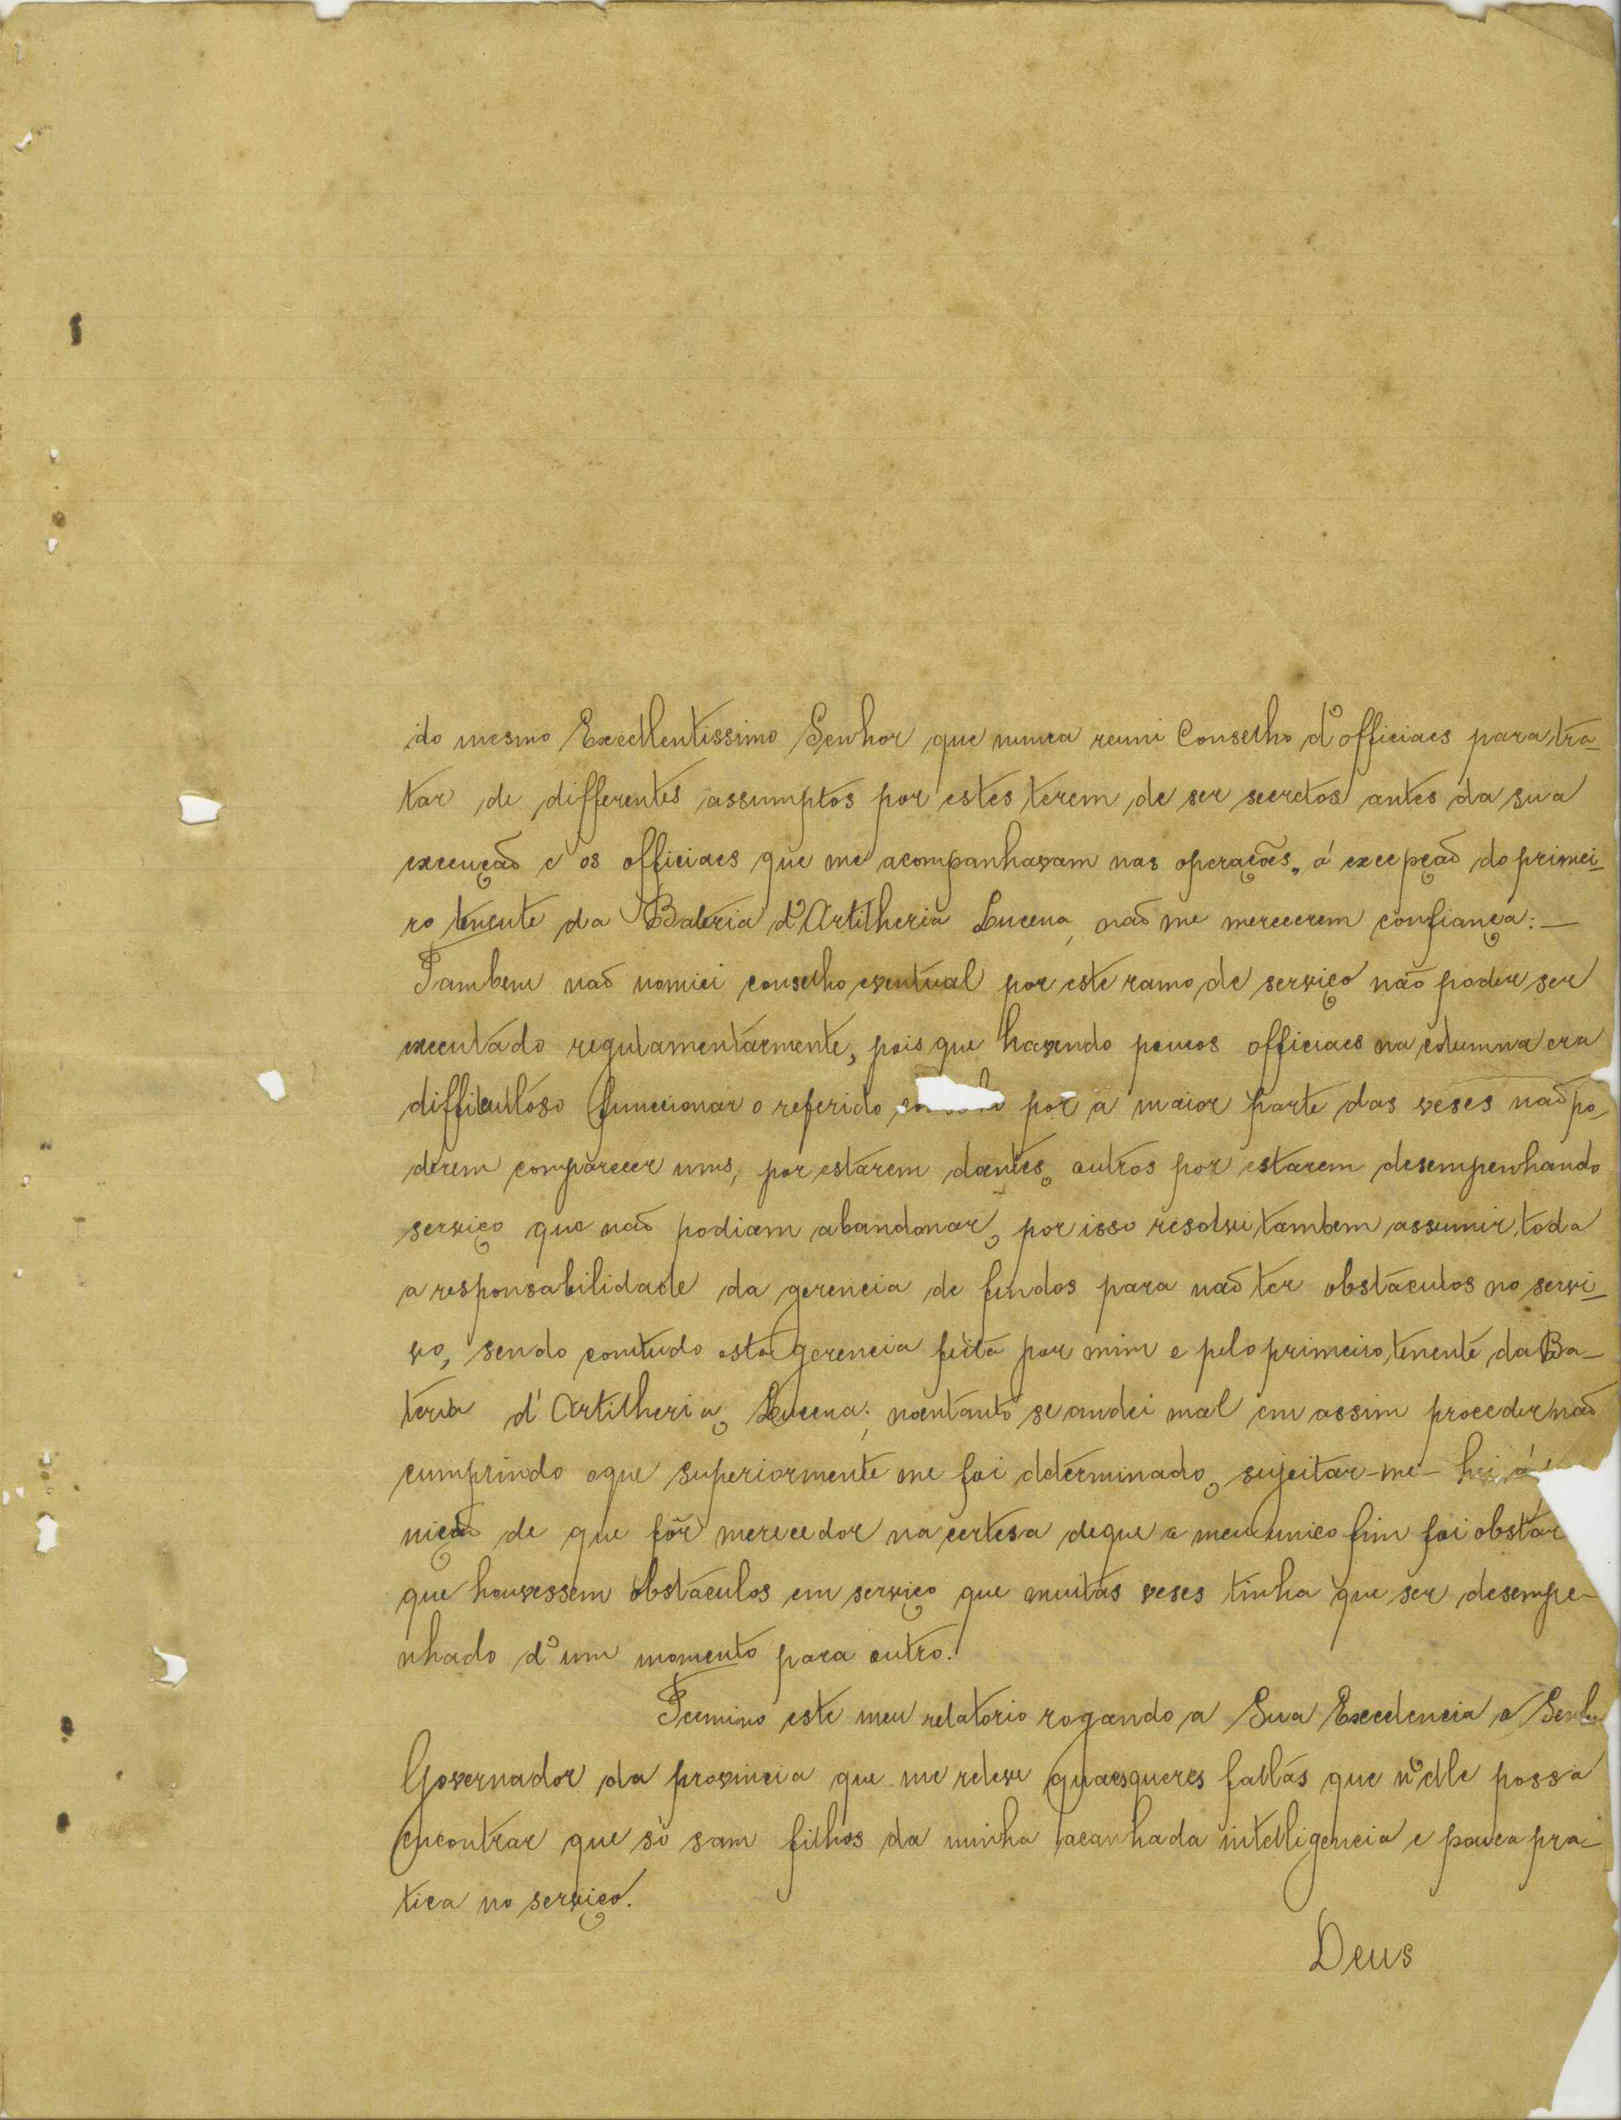 do mesmo Excellentissimo Senhor que nunca reuni Conselho d'officiaes para tra-
tar de differentes assumptos por estes terem de ser secretos antes da sua
execução e os officiaes que me acompanhavam nas operações, á excepção do primei-
ro tenente da Bateria d'Artilheria Lucena, não me merecerem confiança: —
Tambem não nomiei conselho eventual por este ramo de serviço não poder ser
executado regulamentarmente, pois que havendo poucos officiaes na columna era
difficultoso funccionar o referido por a maior parte das veses não po-
derem comparecer uns, por estarem doentes, outros por estarem desempenhando
serviço que não podiam abandonar, por isso resolvi tambem assumir toda
a responsabilidade da gerencia de fundos para não ter obstaculos no servi-
ço, sendo comtudo esta gerencia feita por mim e pelo primeiro tenente da Ba-
teria d'Artilheria, Lucena; noentanto se andei mal em assim proceder não
cumprindo oque superiormente me foi determinado, sujeitar-me-hei á
nição de que fôr merecedor na certesa deque o meu unico fim foi obstar
que houvessem obstaculos em serviço que muitas veses tinha que ser desempe-
nhado d'um momento para outro.
Termino este meu relatorio rogando a Sua Excelencia o Senho
Governador da provincia que me releve quaesqueres faltas que n'elle possa
encontrar que só sam filhos da minha acanhada intelligencia e pouca pra-
tica no serviço.
Deus